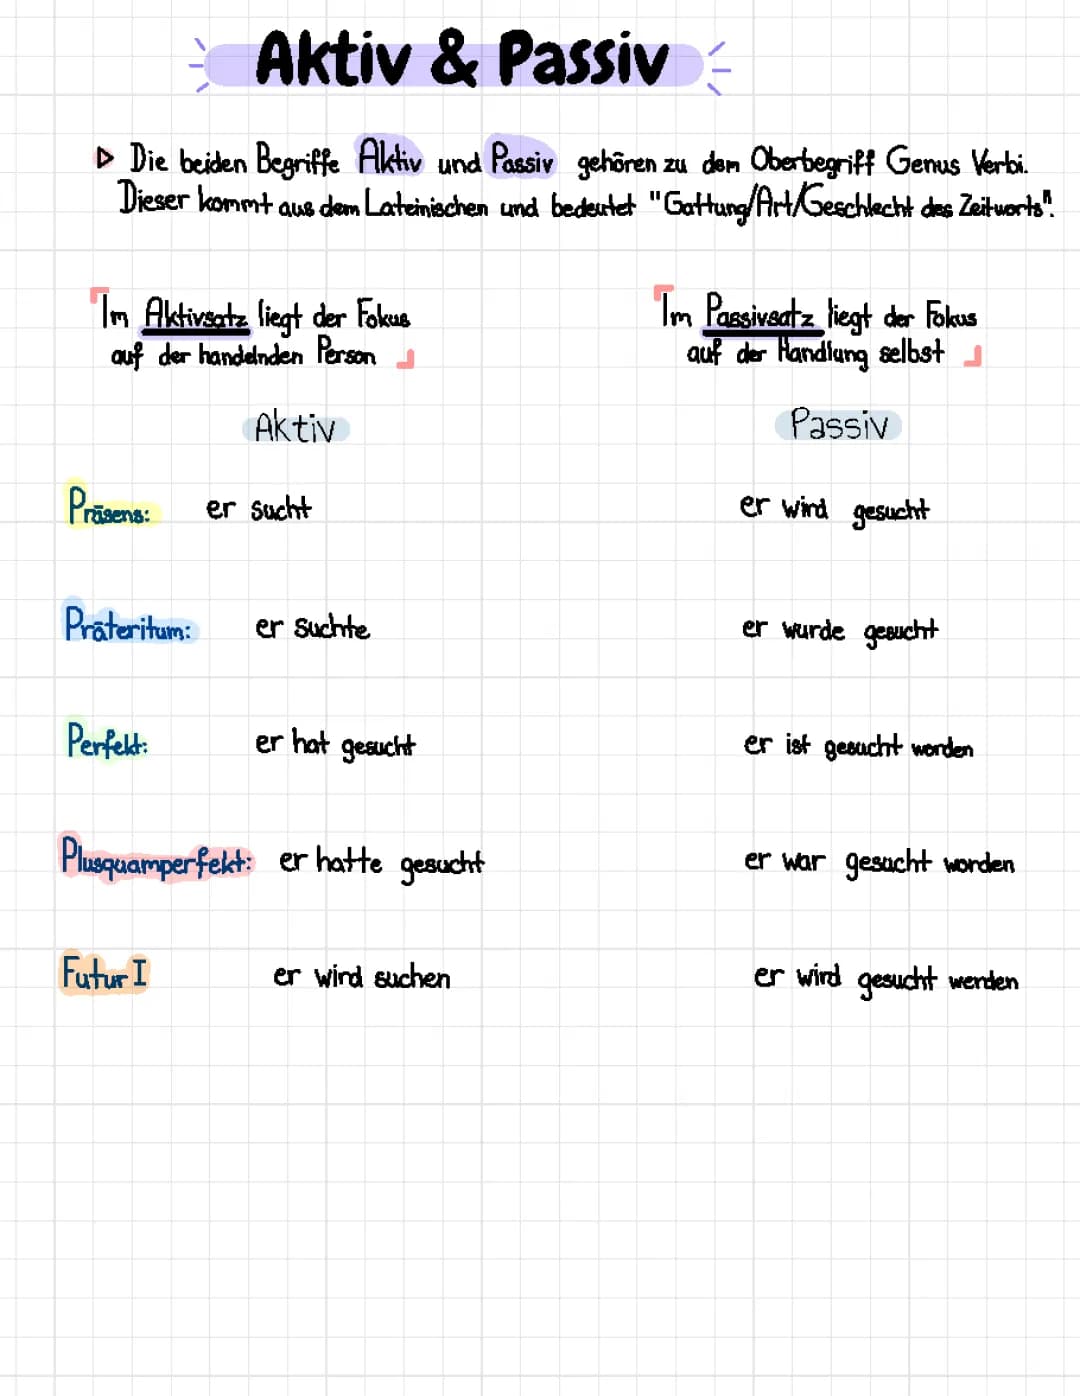 Aktiv & Passiv
Die beiden Begriffe Aktiv und Passiv gehören zu dem Oberbegriff Genus Verbi.
Dieser kommt aus dem Lateinischen und bedeutet "Gattung/Art/Geschlecht des Zeitworts".
Im Aktivsatz liegt der Fokus
auf der handelnden Person
Im Passivsatz liegt der Fokus
auf der Handlung selbst
Aktiv Passiv
Präsens: er sucht er wird gesucht
Präteritum: er suchte er wurde gesucht
Perfekt: er hat gesucht er ist gesucht worden
Plusquamperfekt: er hatte gesucht er war gesucht worden
Futur I er wird suchen er wird gesucht werden